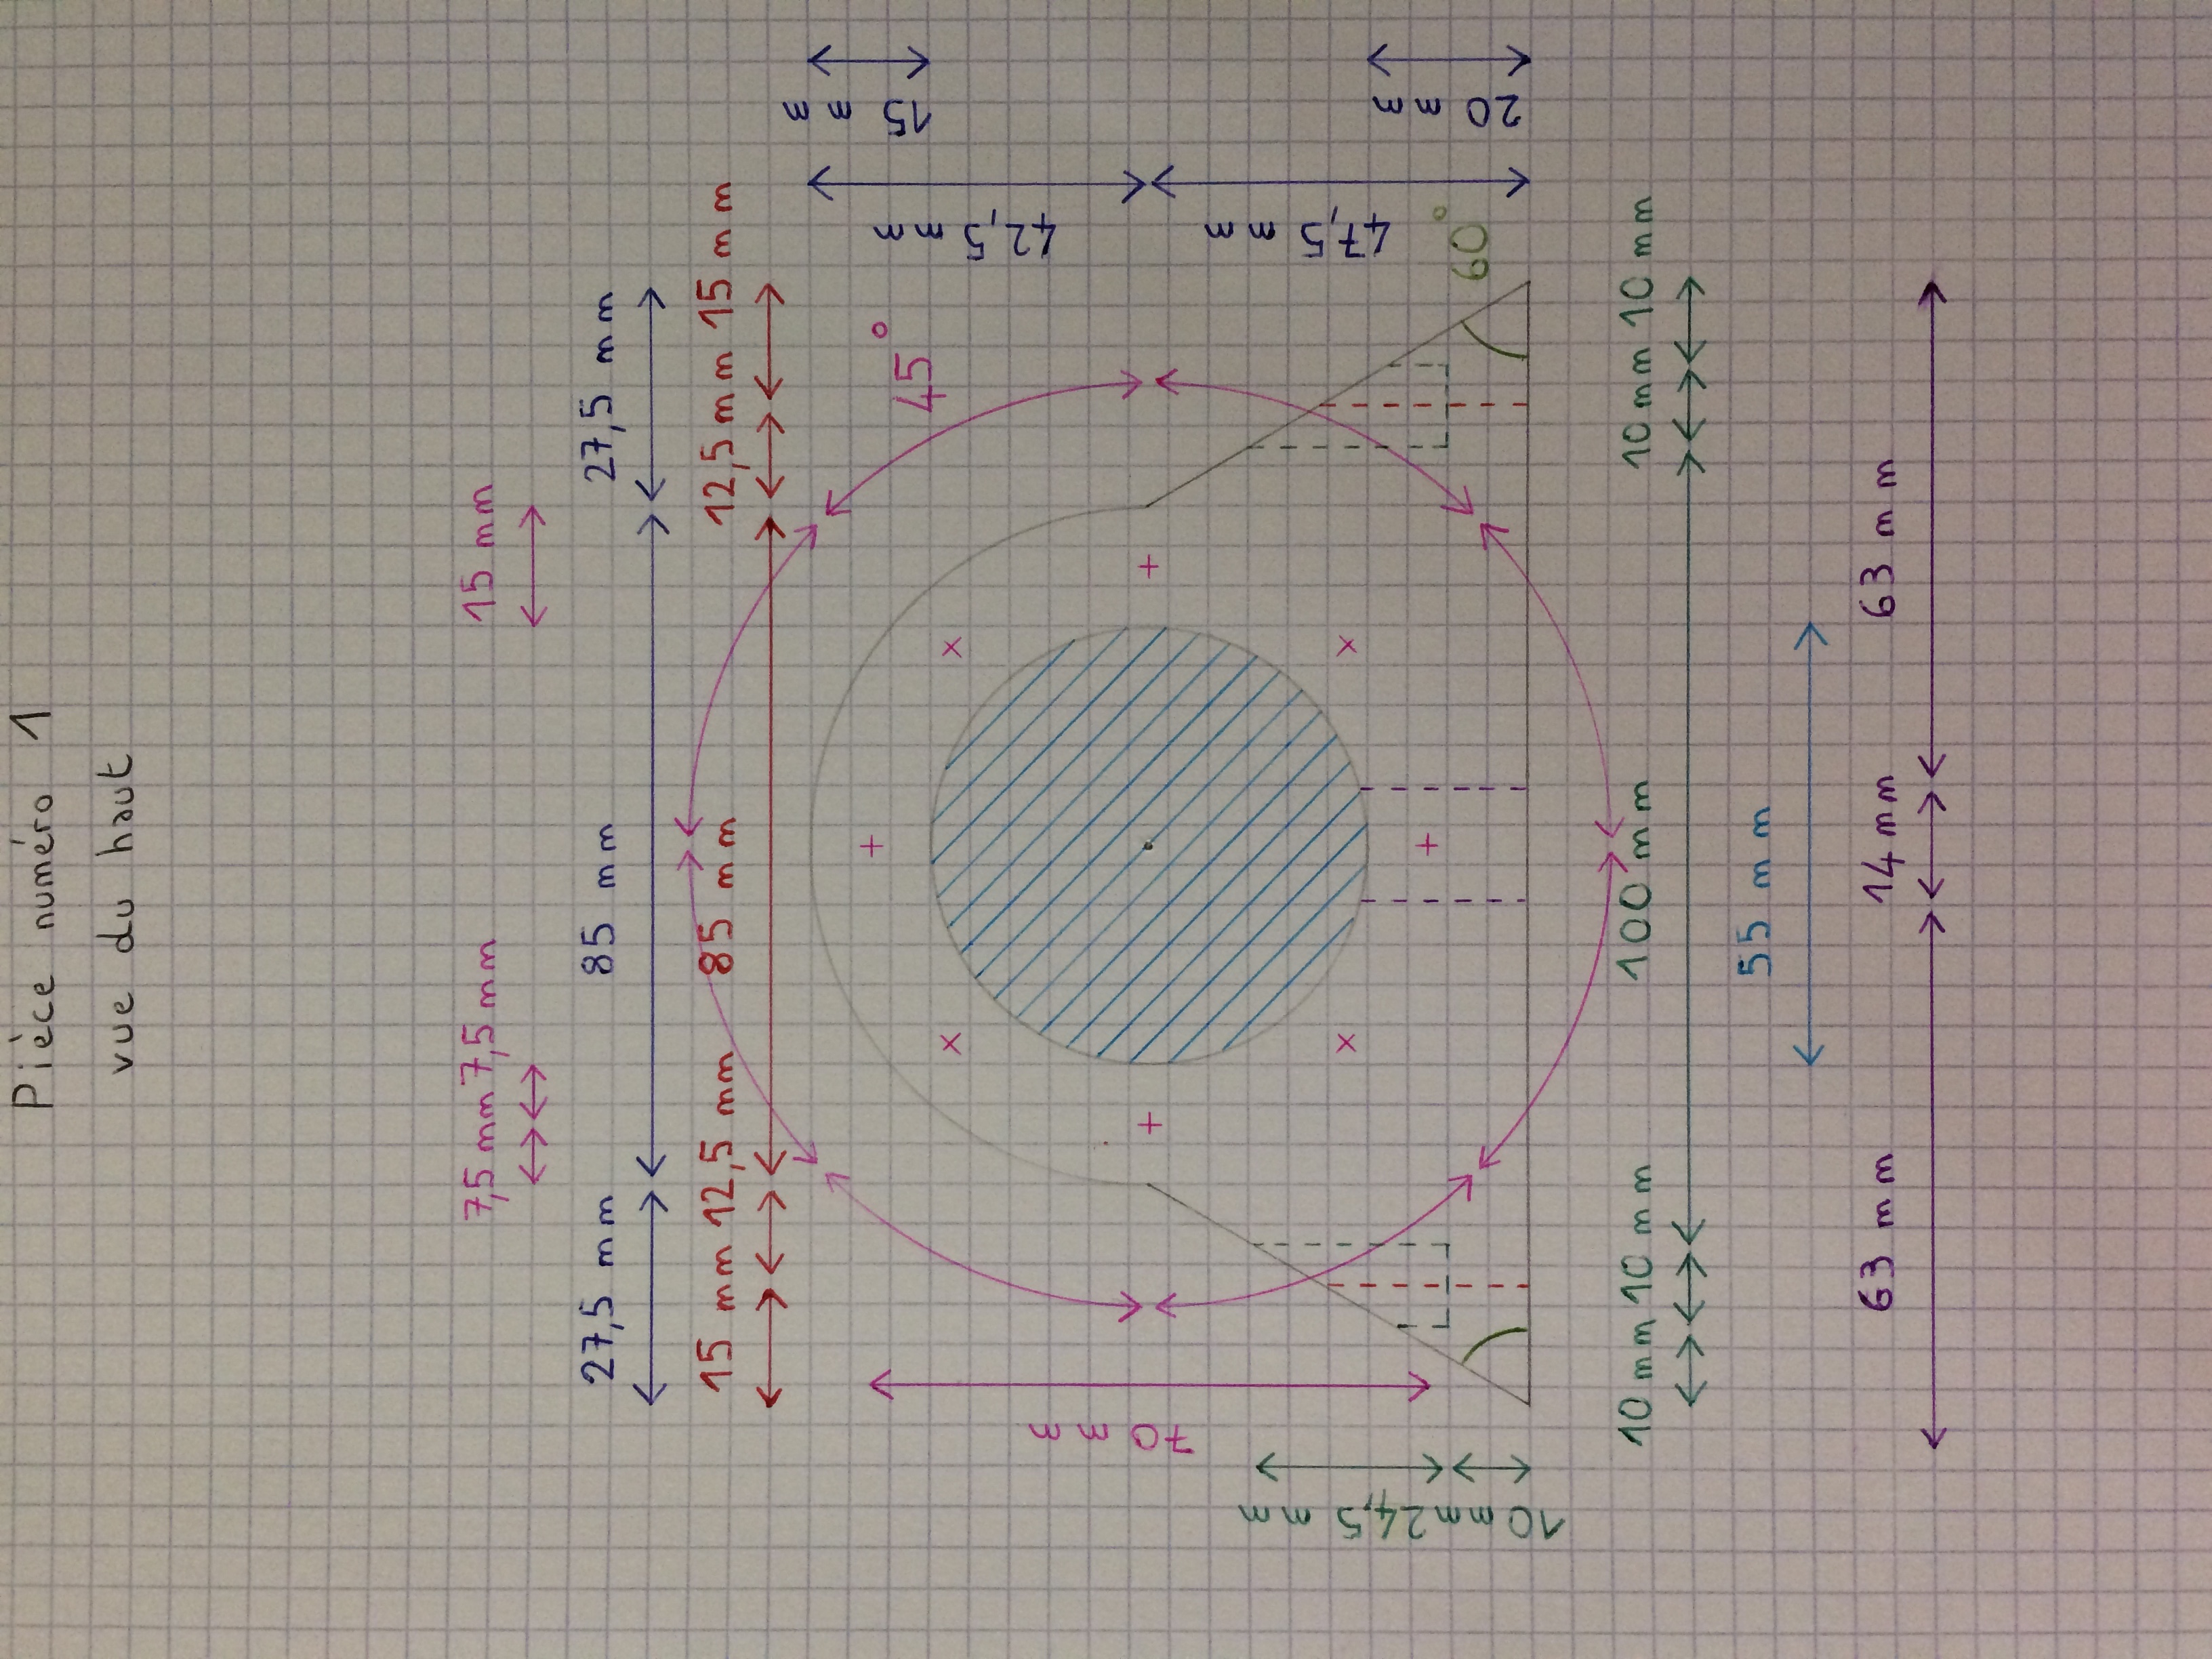 Pièce numéro 1
vue du haut
7,5 mm 7,5 mm 15 mm
27,5 mm 85 mm 27,5 mm
15 mm 12,5 mm 85 mm 12,5 mm 15 mm
45°
70 mm
15 mm
42,5 mm
47,5 mm
20 mm
60°
24,5 mm
10 mm
10 mm 10 mm 100 mm 10 mm 10 mm
55 mm
63 mm 14 mm 63 mm